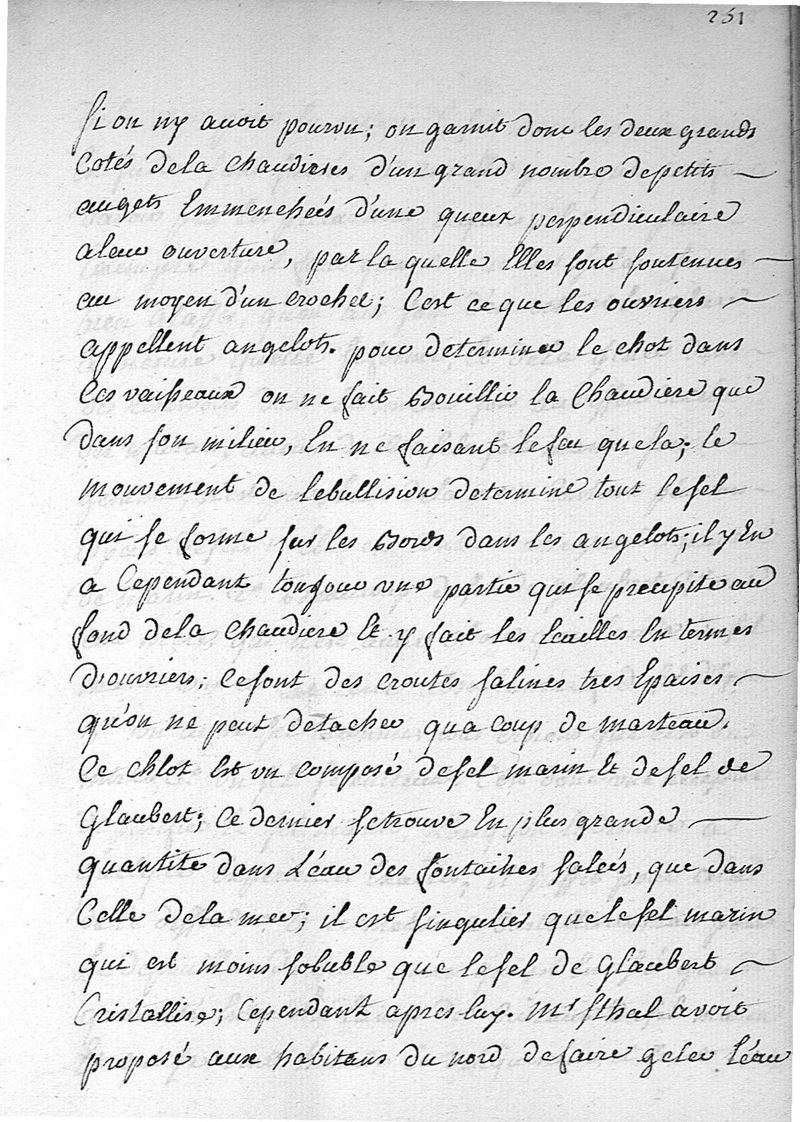 251
Si on ny avoit pourvu; on garnit donc les deux grands
Cotés de la chaudieres d'un grand nombre de petits
augets Emmenchéés d'une queux perpendiculaire
a leur ouverture, par la quelle Elles sont soutenues
au moyen d'un crochet; C'est ce que les ouvriers
appellent angelots. pour determiner le chot dans
Ces vaisseaux on ne fait Bouillir la Chaudiere que
dans son milieu, En ne faisant le feu que la; le
mouvement de lebullision determine tout le sel
qui se forme sur les Bords dans les angelots; il y En
a Cependant toujour une partie qui se precipite au
fond de la Chaudiere Et y fait les Ecailles En termes
D'ouvriers; Ce sont des croutes salines tres Epaises
qu'on ne peut detacher qua coup de marteau.
Ce chlot Est un composé de sel marin Et de sel de
Glaubert; Ce dernier se trouve En plus grande
quantité dans L'éau des fontaines saleés, que dans
Celle de la mer; il est singulier que le sel marin
qui est moins soluble que le sel de Glaubert
Cristallise; Cependant apres luy. Mr Sthal avoit
proposé aux habitans du nord de faire geler l'éau